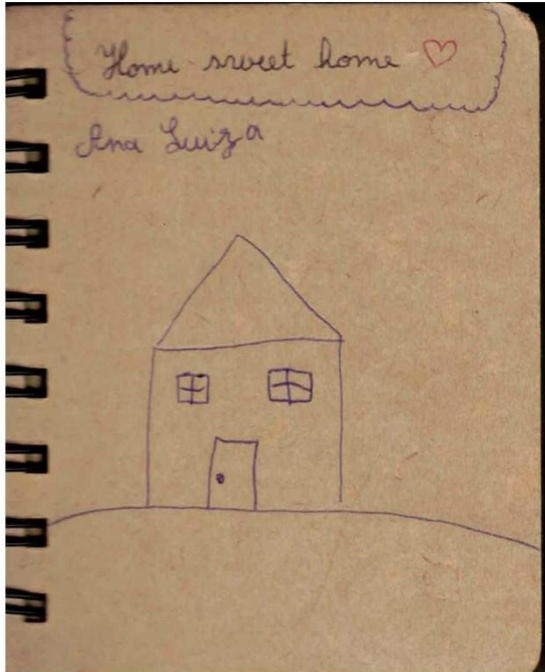 Home sweet home ♡
Ana Luiza